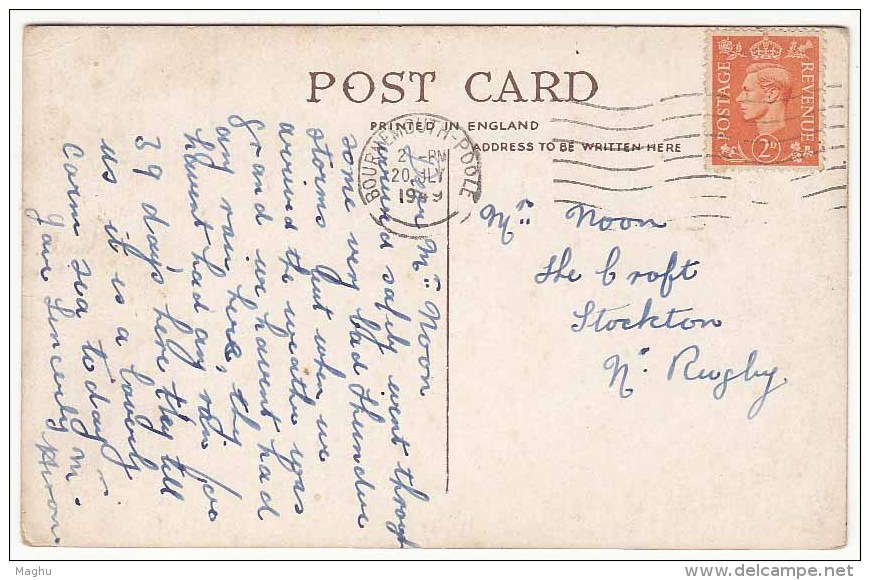 POST CARD
PRINTED IN ENGLAND
ADDRESS TO BE WRITTEN HERE
BOURNEMOUTH-POOLE
PM
20 JLY
1949
POSTAGE
REVENUE
2D
Mrs Noon
The Croft
Stockton
Nr Rugby
Dear Mrs Noon
arrived safely went through
some very bad thunder
storms but when we
arrived the weather was
grand we havent had
any rain here, they
havent had any rain for
39 days here they tell
us it is a lovely
calm sea today
yours Sincerely M.
Heron
Maghu
delcampe.net